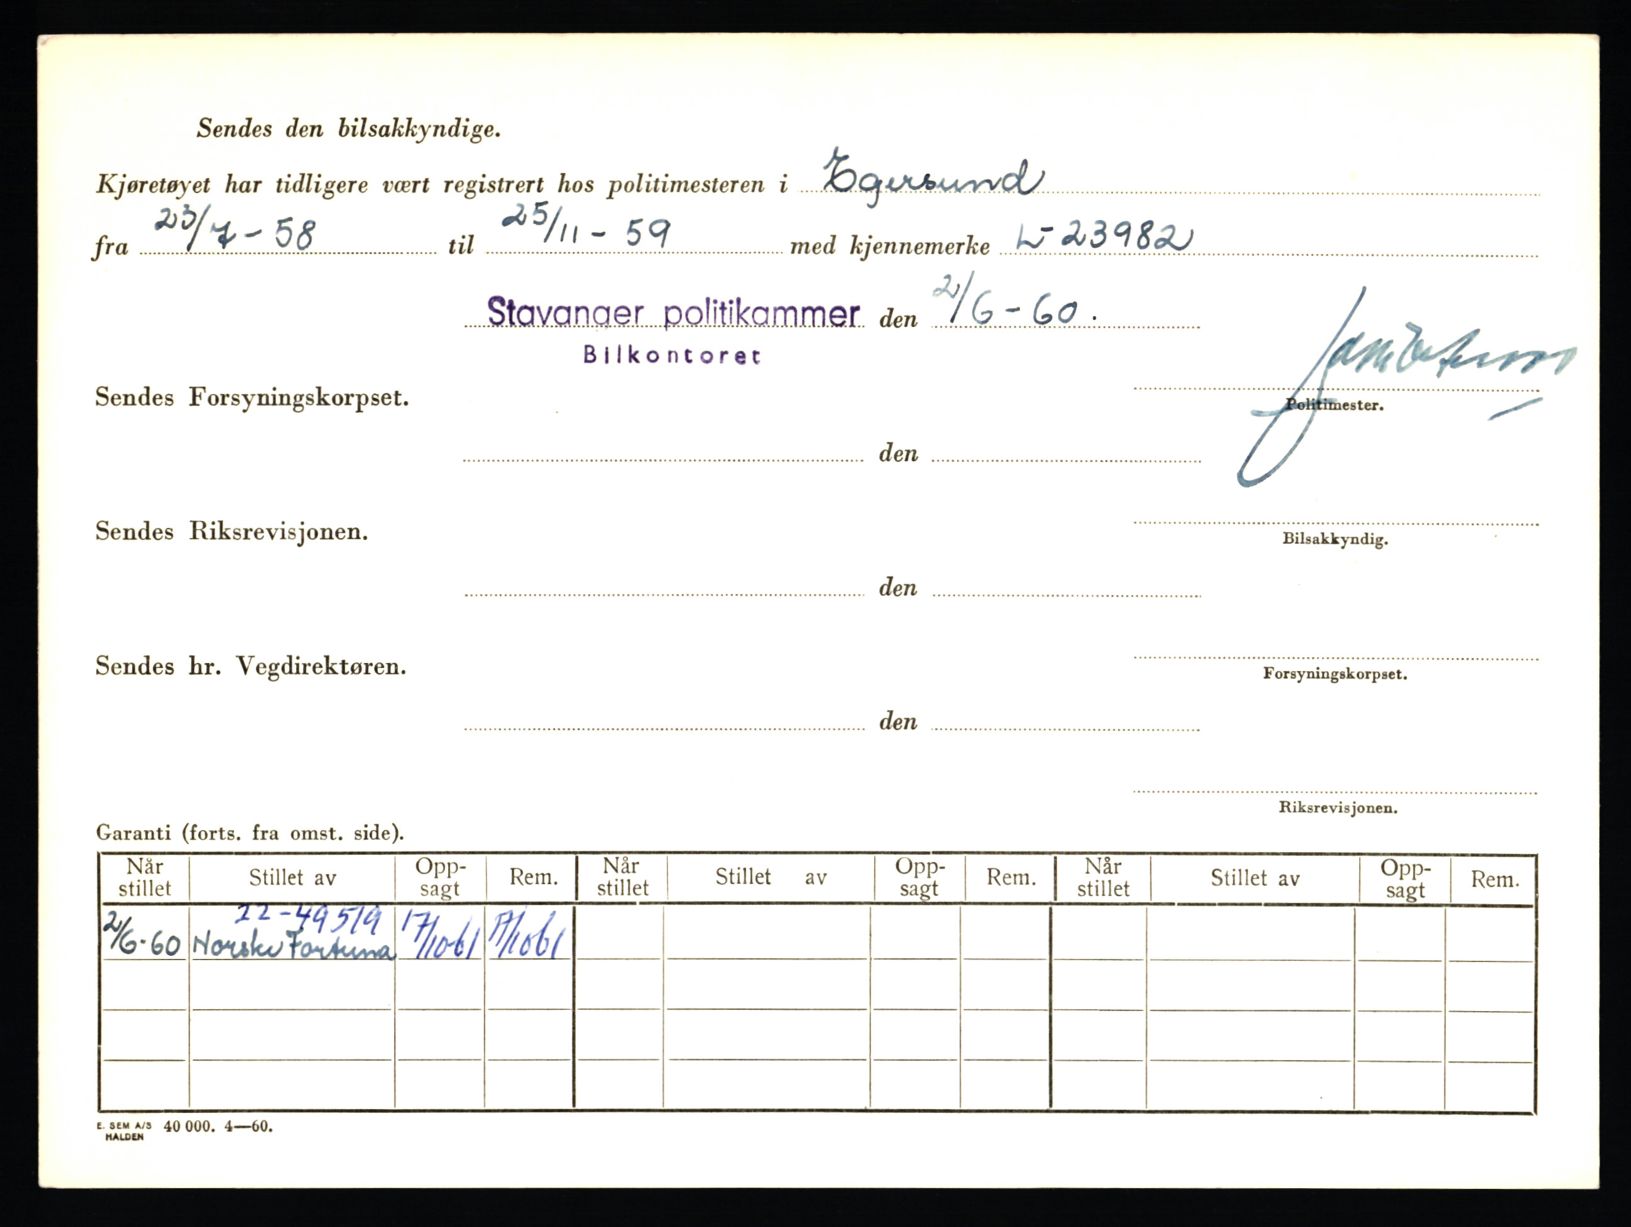 Sendes den bilsakkyndige.
Kjøretøyet har tidligere vært registrert hos politimesteren i Egersund
fra 23/7-58 til 25/11-59 med kjennemerke L-23982
Stavanger politikammer den 2/6-60.
Bilkontoret
Sendes Forsyningskorpset.
Politimester.
den
Sendes Riksrevisjonen.
Bilsakkyndig.
den
Sendes hr. Vegdirektøren.
Forsyningskorpset.
den
Riksrevisjonen.
Garanti (forts. fra omst. side).
Når stillet Stillet av Opp-sagt Rem. Når stillet Stillet av Opp-sagt Rem. Når stillet Stillet av Opp-sagt Rem.
22-49519
2/6-60 Norske Fortuna 17/10-61 17/10-61
E. SEM A/S HALDEN 40 000. 4—60.